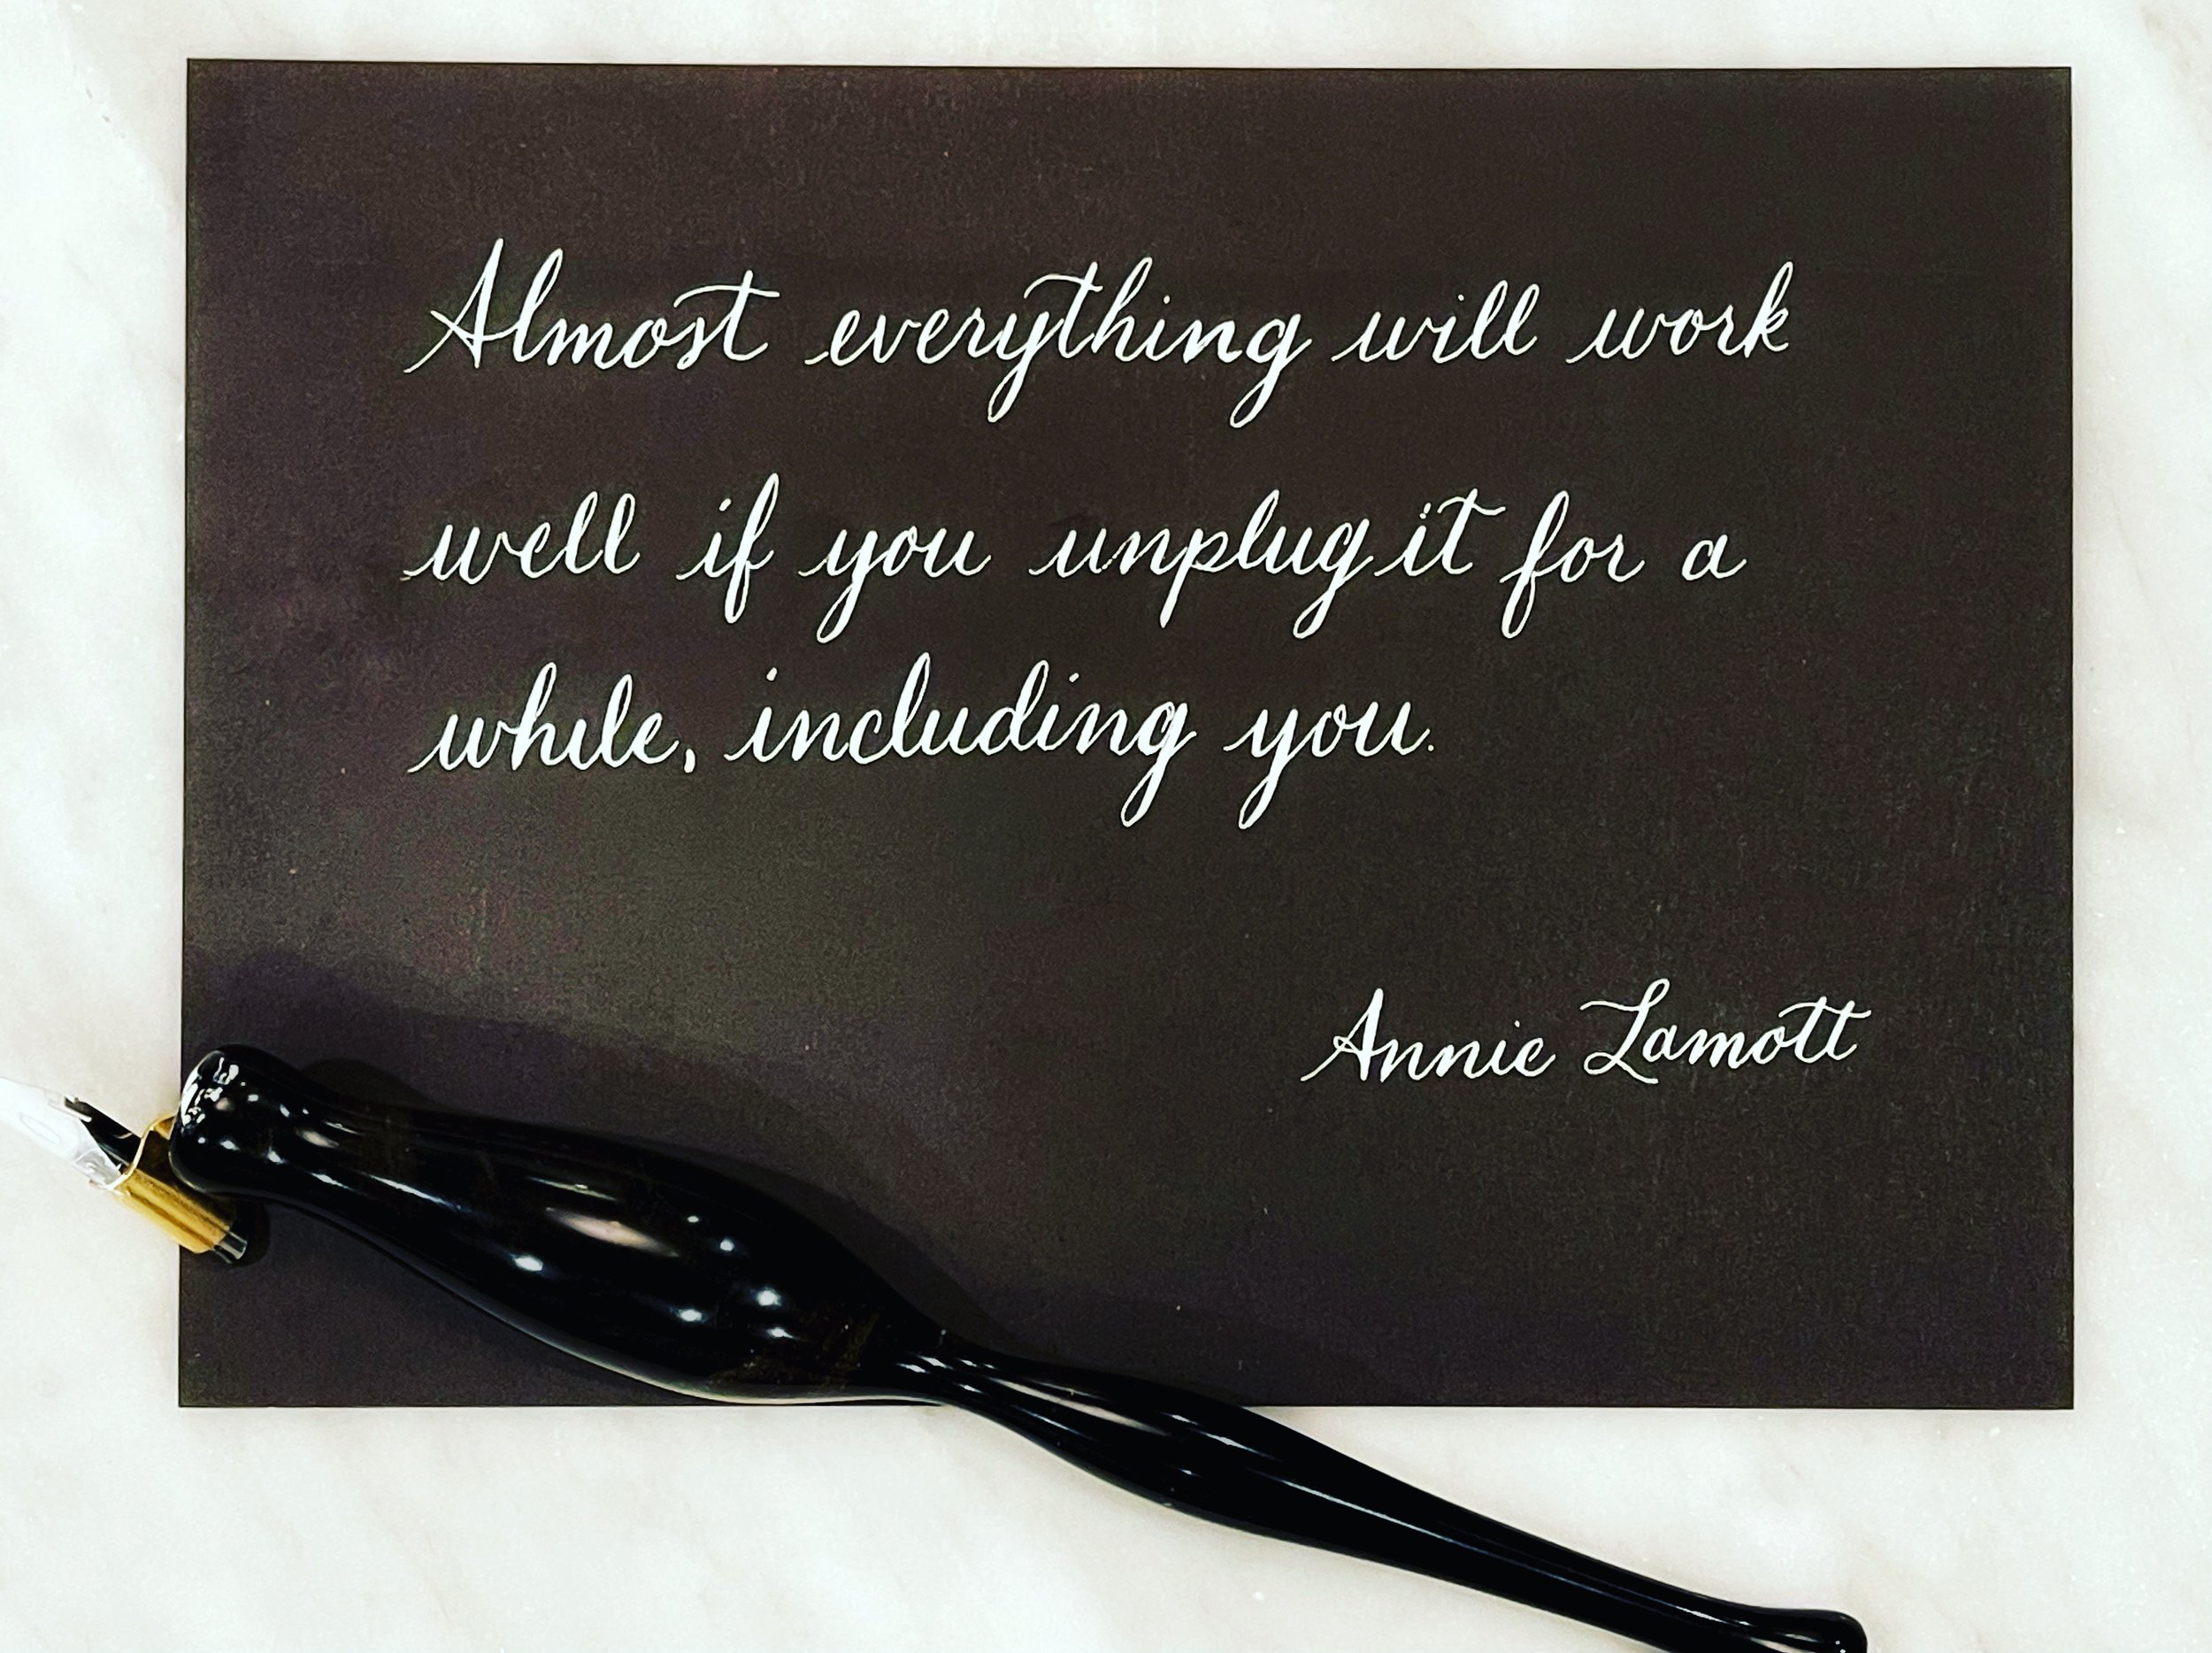 Almost everything will work
well if you unplug it for a
while, including you.
Annie Lamott